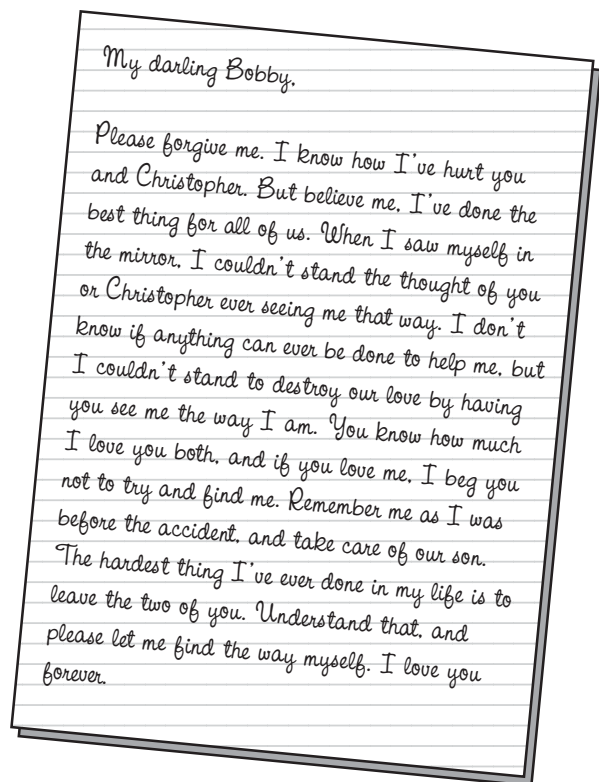 My darling Bobby,
Please forgive me. I know how I've hurt you
and Christopher. But believe me, I've done the
best thing for all of us. When I saw myself in
the mirror, I couldn't stand the thought of you
or Christopher ever seeing me that way. I don't
know if anything can ever be done to help me, but
I couldn't stand to destroy our love by having
you see me the way I am. You know how much
I love you both, and if you love me, I beg you
not to try and find me. Remember me as I was
before the accident, and take care of our son.
The hardest thing I've ever done in my life is to
leave the two of you. Understand that, and
please let me find the way myself. I love you
forever.